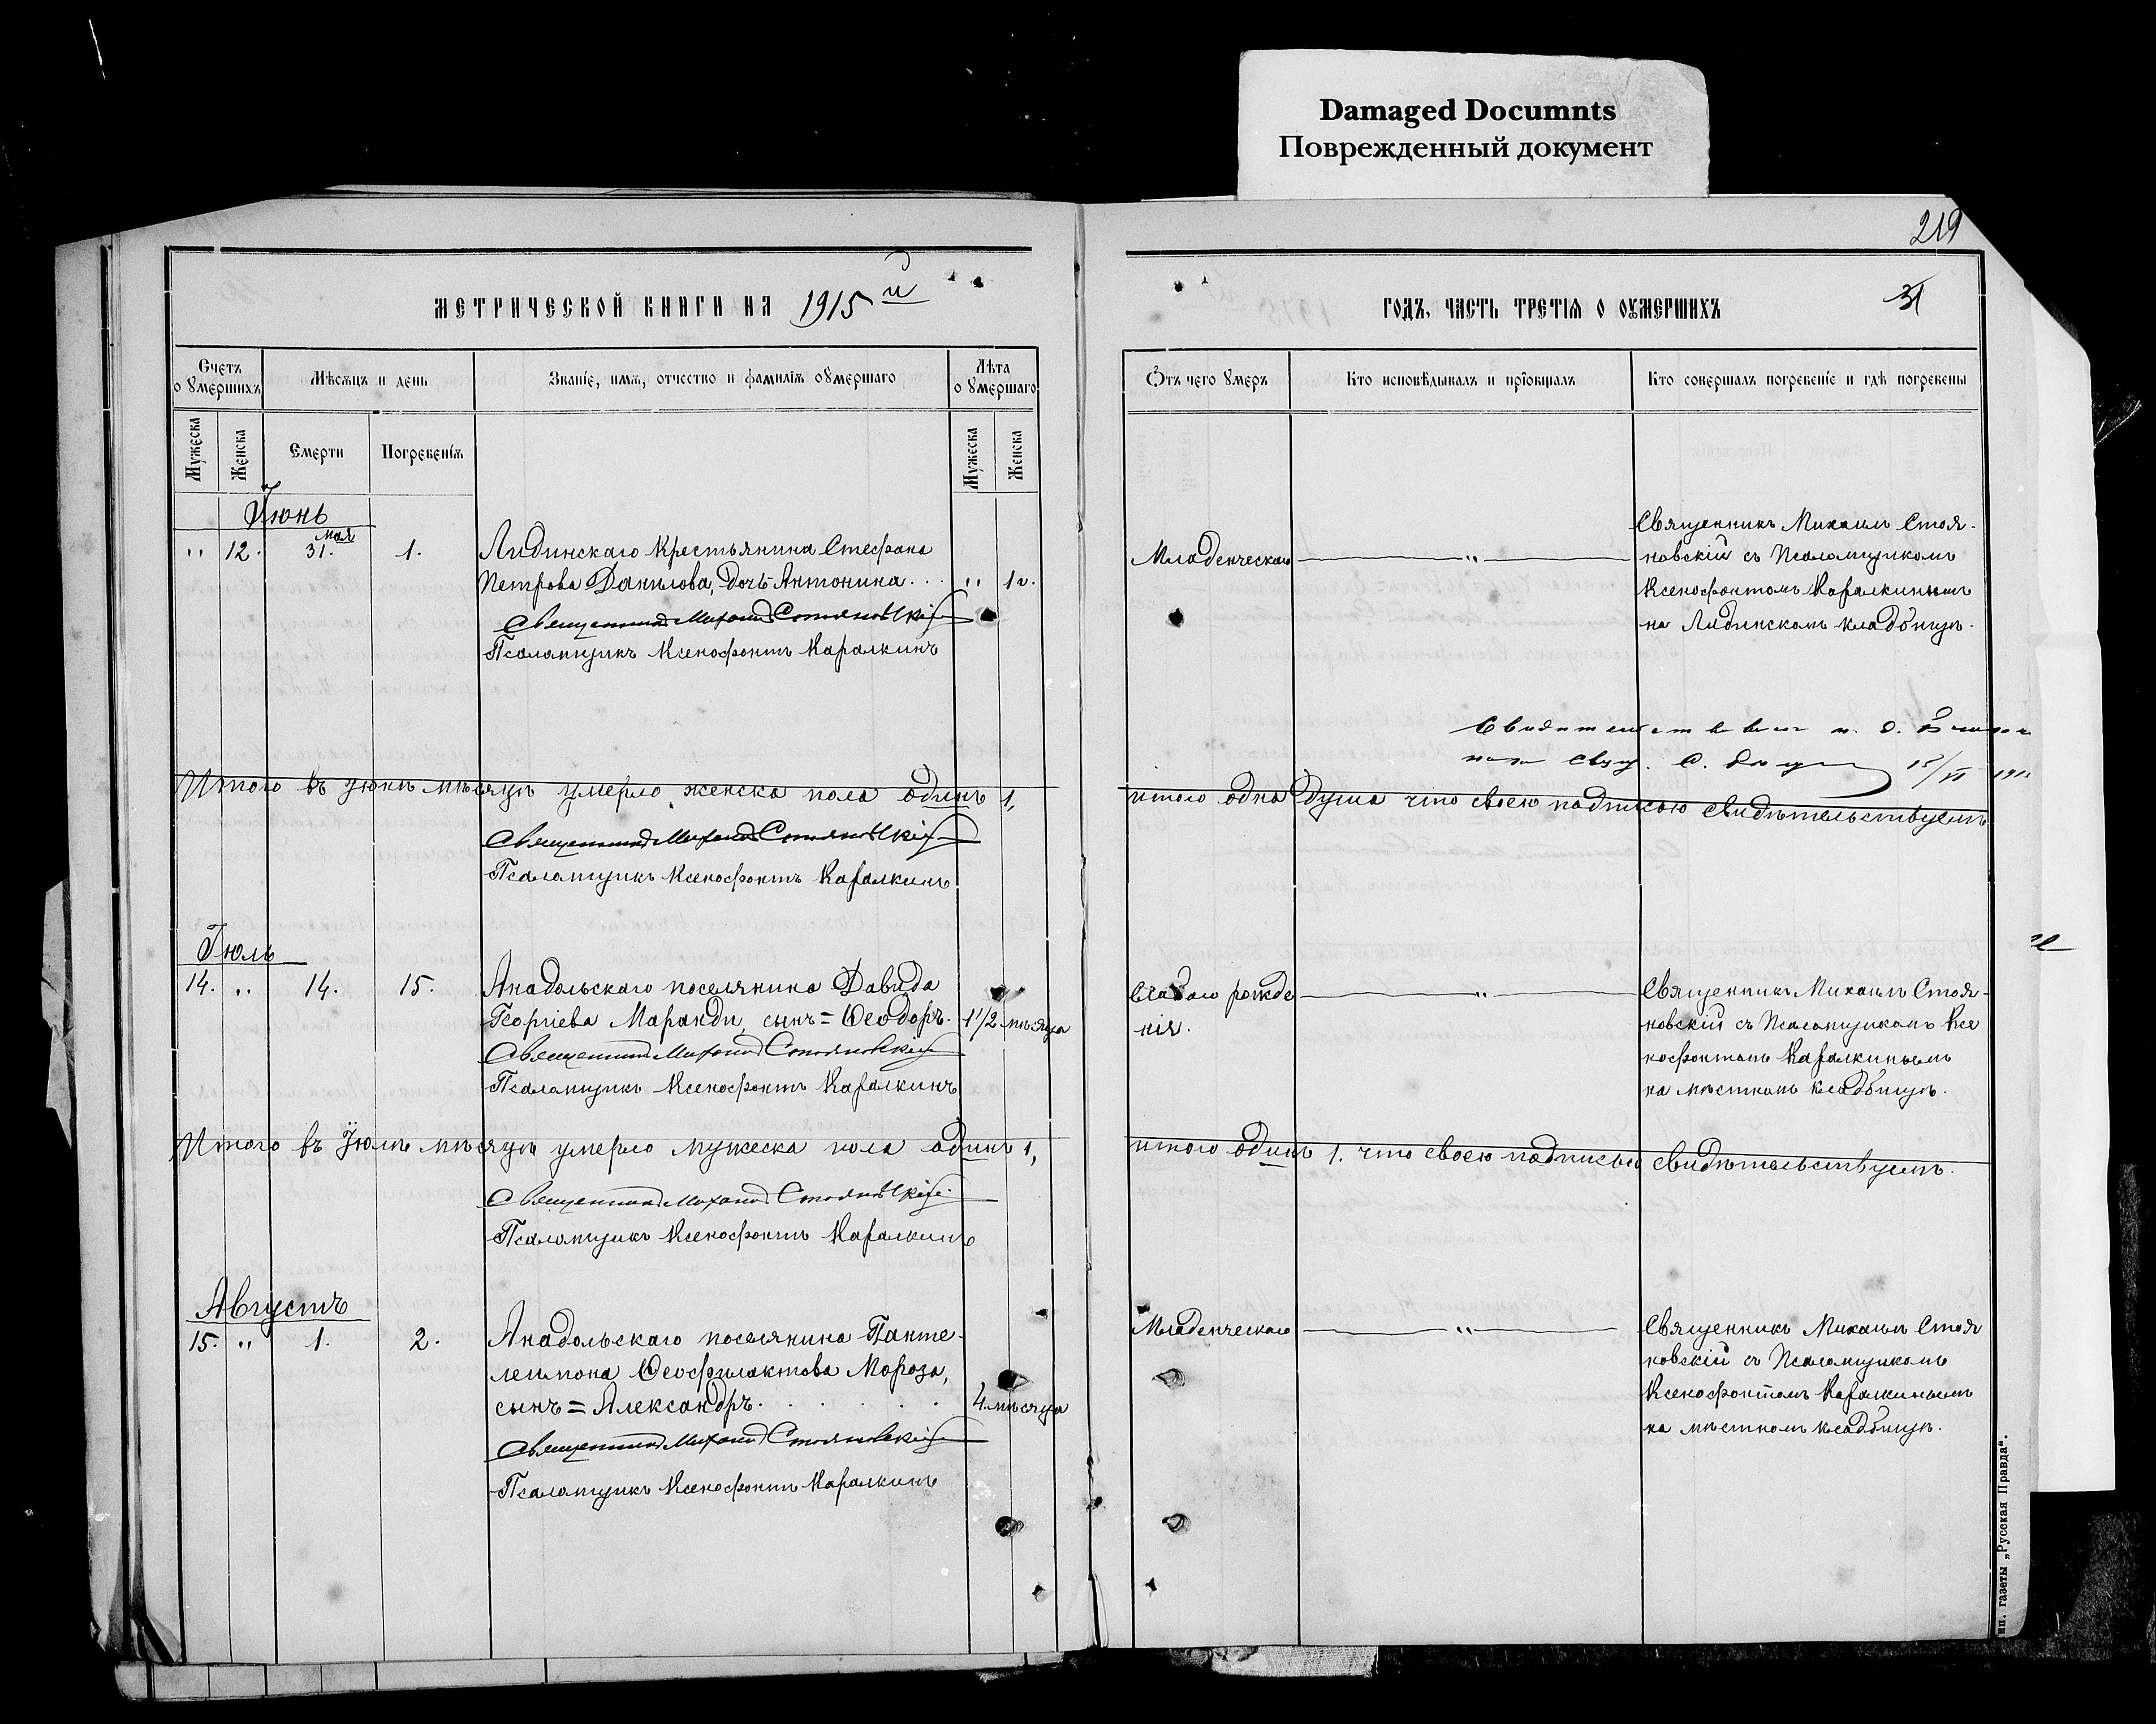 Damaged Documnts
Поврежденный документ
219
МЕТРИЧЕСКОЙ КНИГИ НА 1915й
ГОДЪ, ЧАСТЬ ТРЕТІѦ О ОУМЕРШИХЪ
31
Счетъ о умершихъ
Мѣсѧцъ и день
Званіе, имѧ, отчество и фамиліѧ оумершаго
Лѣта о умершаго
Мужеска
Женска
Смерти
Погребеніѧ
Мужеска
Женска
Отъ чего умеръ
Кто исповѣдывалъ и пріобщалъ
Кто совершалъ погребеніе и гдѣ погребены
Іюнь
" 12. 31. мая 1. Лидинскаго крестьянина Стефана
Петрова Данилова, дочь Антонина. . . " 1 г.
Священникъ Михаилъ Стояновскій
Псаломщикъ Ксенофонтъ Каралкинъ
Младенческаго "
Священникъ Михаилъ Стоя-
новскій съ Псаломщикомъ
Ксенофонтомъ Каралкинымъ
на Лидинскомъ кладбищѣ.
Итого въ Іюнѣ мѣсяцѣ умерло женска пола одинъ 1,
итого одна душа что своею подписью свидѣтельствуемъ
Священникъ Михаилъ Стояновскій
Псаломщикъ Ксенофонтъ Каралкинъ
Іюль
14. " 14. 15. Анадольскаго поселянина Давида
Георгіева Маранди, сынъ = Ѳеодоръ. 1 1/2 мѣсяца
Священникъ Михаилъ Стояновскій
Псаломщикъ Ксенофонтъ Каралкинъ
Слабаго рожде "
нія.
Священникъ Михаилъ Стоя-
новскій съ Псаломщикомъ Ксе
нофонтомъ Каралкинымъ
на мѣстномъ кладбищѣ.
Итого въ Іюлѣ мѣсяцѣ умерло мужеска пола одинъ 1,
итого одинъ 1. что своею подписью свидѣтельствуемъ.
Священникъ Михаилъ Стояновскій
Псаломщикъ Ксенофонтъ Каралкинъ
Августъ
15. " 1. 2. Анадольскаго поселянина Панте-
леимона Ѳеофилактова Мороза,
сынъ = Александръ. . . . . . 4 мѣсяца
Священникъ Михаилъ Стояновскій
Псаломщикъ Ксенофонтъ Каралкинъ
Младенческаго "
Священникъ Михаилъ Стоя
новскій съ Псаломщикомъ
Ксенофонтомъ Каралкинымъ
на мѣстномъ кладбищѣ.
газеты „Русская Правда“.